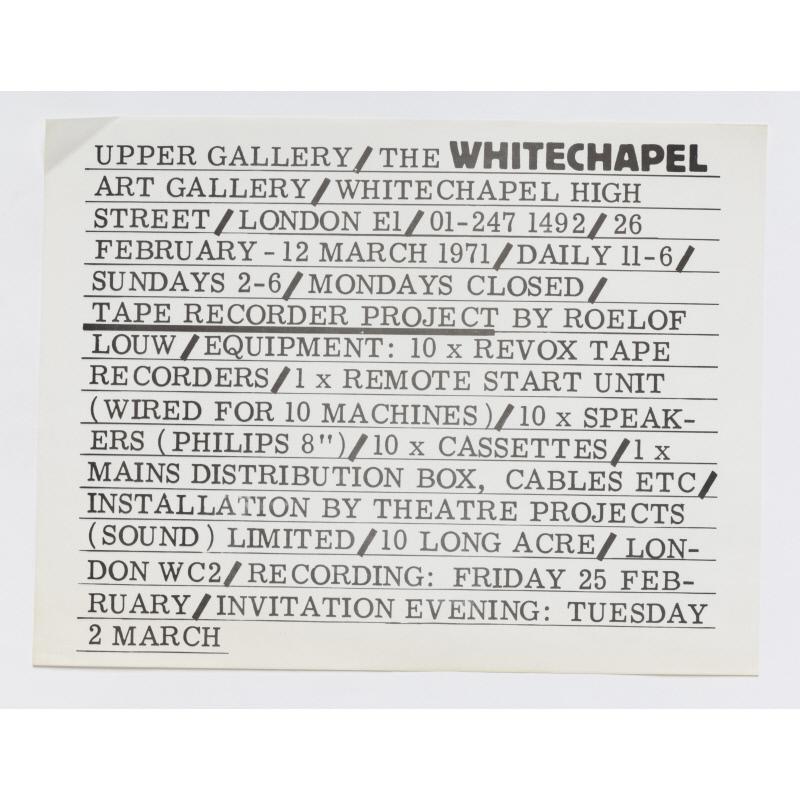 UPPER GALLERY/THE WHITECHAPEL
ART GALLERY/WHITECHAPEL HIGH
STREET/LONDON E1/01-247 1492/26
FEBRUARY - 12 MARCH 1971/DAILY 11-6/
SUNDAYS 2-6/MONDAYS CLOSED/
TAPE RECORDER PROJECT BY ROELOF
LOUW/EQUIPMENT: 10 x REVOX TAPE
RECORDERS/1 x REMOTE START UNIT
(WIRED FOR 10 MACHINES)/10 x SPEAK-
ERS (PHILIPS 8")/10 x CASSETTES/1 x
MAINS DISTRIBUTION BOX, CABLES ETC/
INSTALLATION BY THEATRE PROJECTS
(SOUND) LIMITED/10 LONG ACRE/LON-
DON WC2/RECORDING: FRIDAY 25 FEB-
RUARY/INVITATION EVENING: TUESDAY
2 MARCH